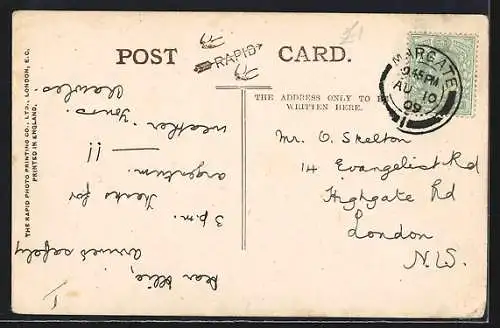 £1
POST CARD.
RAPID
THE ADDRESS ONLY TO BE
WRITTEN HERE.
MARGATE
9.45 PM
AU 10
09
THE RAPID PHOTO PRINTING CO., LTD., LONDON, E.C.
PRINTED IN ENGLAND.
Mr. O. Skelton
14 Evangelist Rd
Highgate Rd
London
N.W.
Dear Ollie,
arrived safely
3 p.m.
Thanks for
argentum.
!!
weather.
Yours.
Charles.